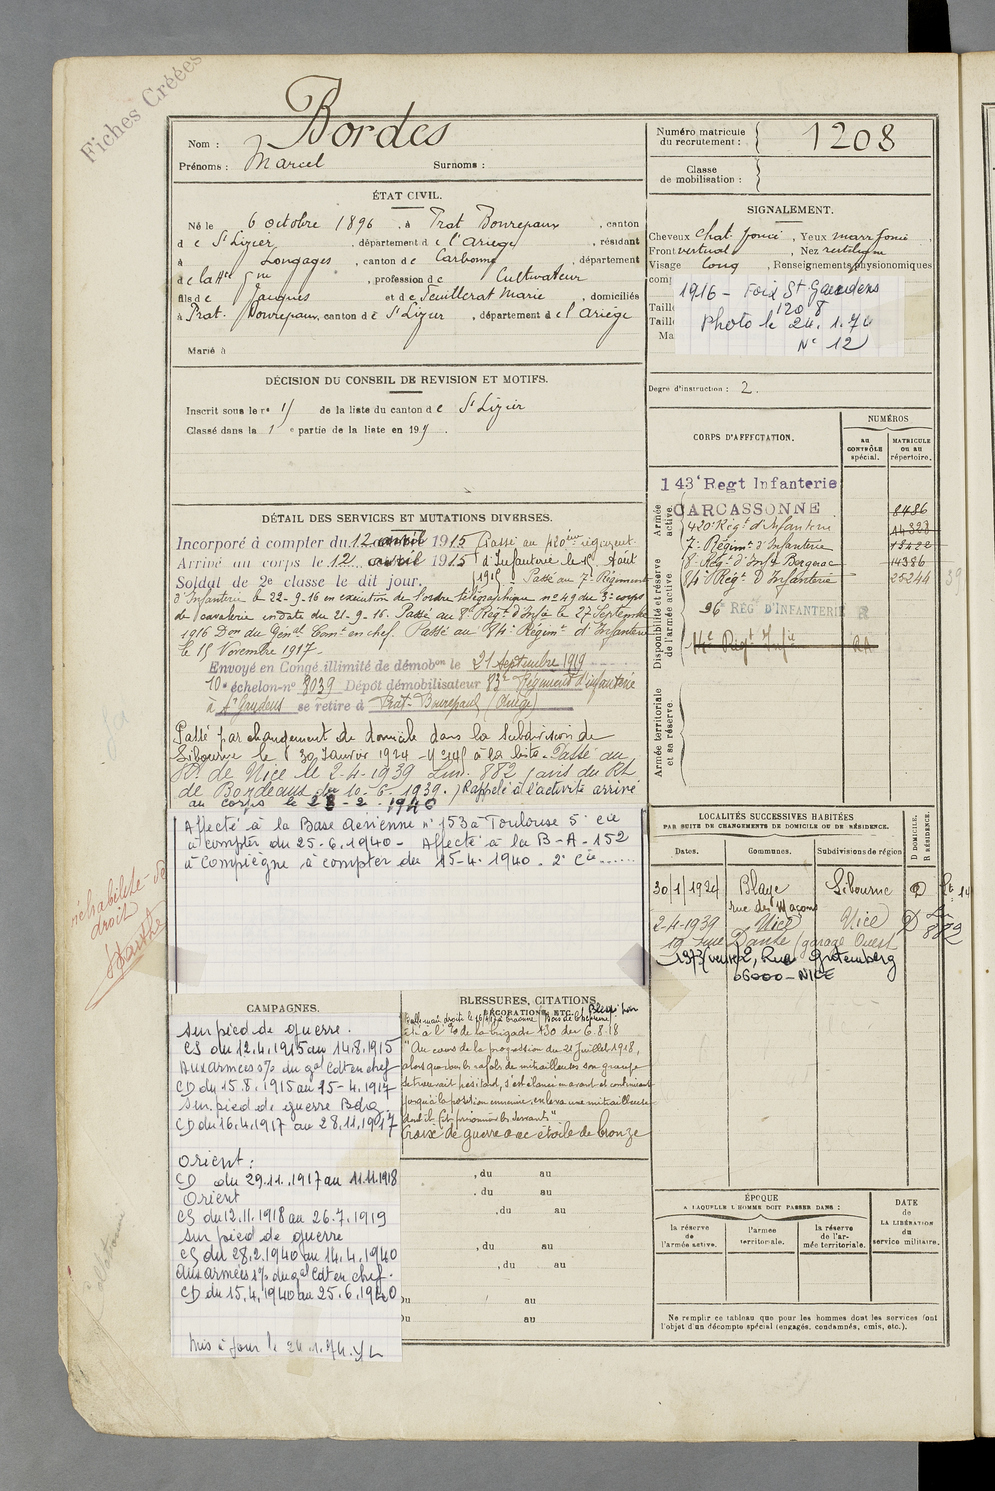 Fiches Créées
Nom : Bordes
Prénoms : Marcel Surnoms :
Numéro matricule du recrutement : 1208
Classe de mobilisation :
ÉTAT CIVIL.
Né le 6 octobre 1896, à Prat Bonrepaux, canton
de St Lizier, département de l'Ariège, résidant
à Longages, canton de Carbonne, département
de la Hte Gne, profession de Cultivateur
fils de Jacques et de Feuillerat Marie, domiciliés
à Prat. Bonrepaux, canton de St Lizier, département de l'Ariège
Marié à
SIGNALEMENT.
Cheveux chat. foncé, Yeux marr foncé,
Front vertical, Nez rectiligne
Visage long, Renseignements physionomiques
com
1916 - Foix St Gaudens
1208
Photo le 24.1.74
N° 12
Taill
Taill
Ma
Degré d'instruction : 2.
DÉCISION DU CONSEIL DE REVISION ET MOTIFS.
Inscrit sous le n° 11 de la liste du canton de St Lizier
Classé dans la 1e partie de la liste en 191
CORPS D'AFFECTATION.
NUMÉROS
AU CONTRÔLE spécial.
MATRICULE OU AU répertoire.
Armée active.
143e Regt Infanterie
CARCASSONNE 8486
420e Régt d'Infanterie
7e Régimt d'Infanterie
8e Régt d'Inft Bergerac 14386
84e Régt D'Infanterie 25244
39
Disponibilité et réserve de l'armée active
96e REGt D'INFANTERIE R
14e Régt Infie RA
Armée territoriale et sa réserve.
DÉTAIL DES SERVICES ET MUTATIONS DIVERSES.
Incorporé à compter du 12 avril 1915 Passé au 420ème régiment
Arrivé au corps le 12 avril 1915 d'Infanterie le 15 Août
Soldat de 2e classe le dit jour. 1915 Passé au 7e Régiment
d'Infanterie le 22-9-16 en exécution de l'ordre télégraphique n° 49 du 3e corps
de cavalerie en date du 21-9-16. Passé au 8e Régt d'Infie le 27 Septembre
1916 Don du Génal Comt en chef. Passé au 84e Régimt d'Infanterie
le 15 Novembre 1917-
Envoyé en Congé illimité de démobon le 21 septembre 1919
10e échelon-n° 8039 Dépôt démobilisateur 83e Régiment d'infanterie
à St Gaudens se retire à Prat-Bonrepaux (Ariège)
Passé par changement de domicile dans la subdivision de
Libourne le 30 Janvier 1924 - n° 14 à la liste. Passé au
de Nice le 2-4-1939 Lim. 882 (avis du
de Bordeaux du 10-6-1939.) Rappelé à l'activité arrivé
au corps le 28-2-1940
Affecté à la Base Aérienne n° 153 à Toulouse 5e cie
à compter du 25.6.1940- Affecté à la B-A-152
à Compiègne à compter du 15-4.1940. 2e Cie......
réhabilité de droit
LOCALITÉS SUCCESSIVES HABITÉES
PAR SUITE DE CHANGEMENTS DE DOMICILE OU DE RÉSIDENCE.
Dates. Communes. Subdivisions de région D DOMICILE, R RÉSIDENCE.
30/1/1924 Blaye Libourne D 14
rue des Maçons
2-4-1939 Nice Nice D 882
19 rue Dante (garage Ouest
2, Rue Gutemberg
06000-NICE
CAMPAGNES.
sur pied de guerre.
CS du 12.4.1915 au 14.8.1915
Aux armées s/s du gal Cdt en chef
CD du 15.8.1915 au 15-4.1917
sur pied de guerre
CD du 16.4.1917 au 28.11.1917
Orient :
CD du 29.11.1917 au 11.11.1918
Orient
CS du 12.11.1918 au 26.7.1919
sur pied de guerre
CS du 28.2.1940 au 14.4.1940
Aux armées s/s du gal Cdt en chef.
CD du 15.4.1940 au 25.6.1940
Mis à jour le 24.1.74.
BLESSURES, CITATIONS, DÉCORATIONS, ETC.
Cité à l'O de la brigade 130 du 6.8.18
"Au cours de la progression du 21 Juillet 1918,
alors que sous les rafales de mitrailleuses son groupe
se trouvait hésitant, s'est élancé en avant et continuant
jusqu'à la position ennemie, enleva une mitrailleuse
dont il fit prisonniers les servants"
Croix de guerre avec étoile de bronze
, du au
, du au
, du au
, du au
, du au
Du au
Du au
ÉPOQUE
A LAQUELLE L'HOMME DOIT PASSER DANS :
la réserve de l'armée active.
l'armée territoriale.
la réserve de l'armée territoriale.
DATE de LA LIBÉRATION du service militaire.
Ne remplir ce tableau que pour les hommes dont les services font
l'objet d'un décompte spécial (engagés, condamnés, omis, etc.).